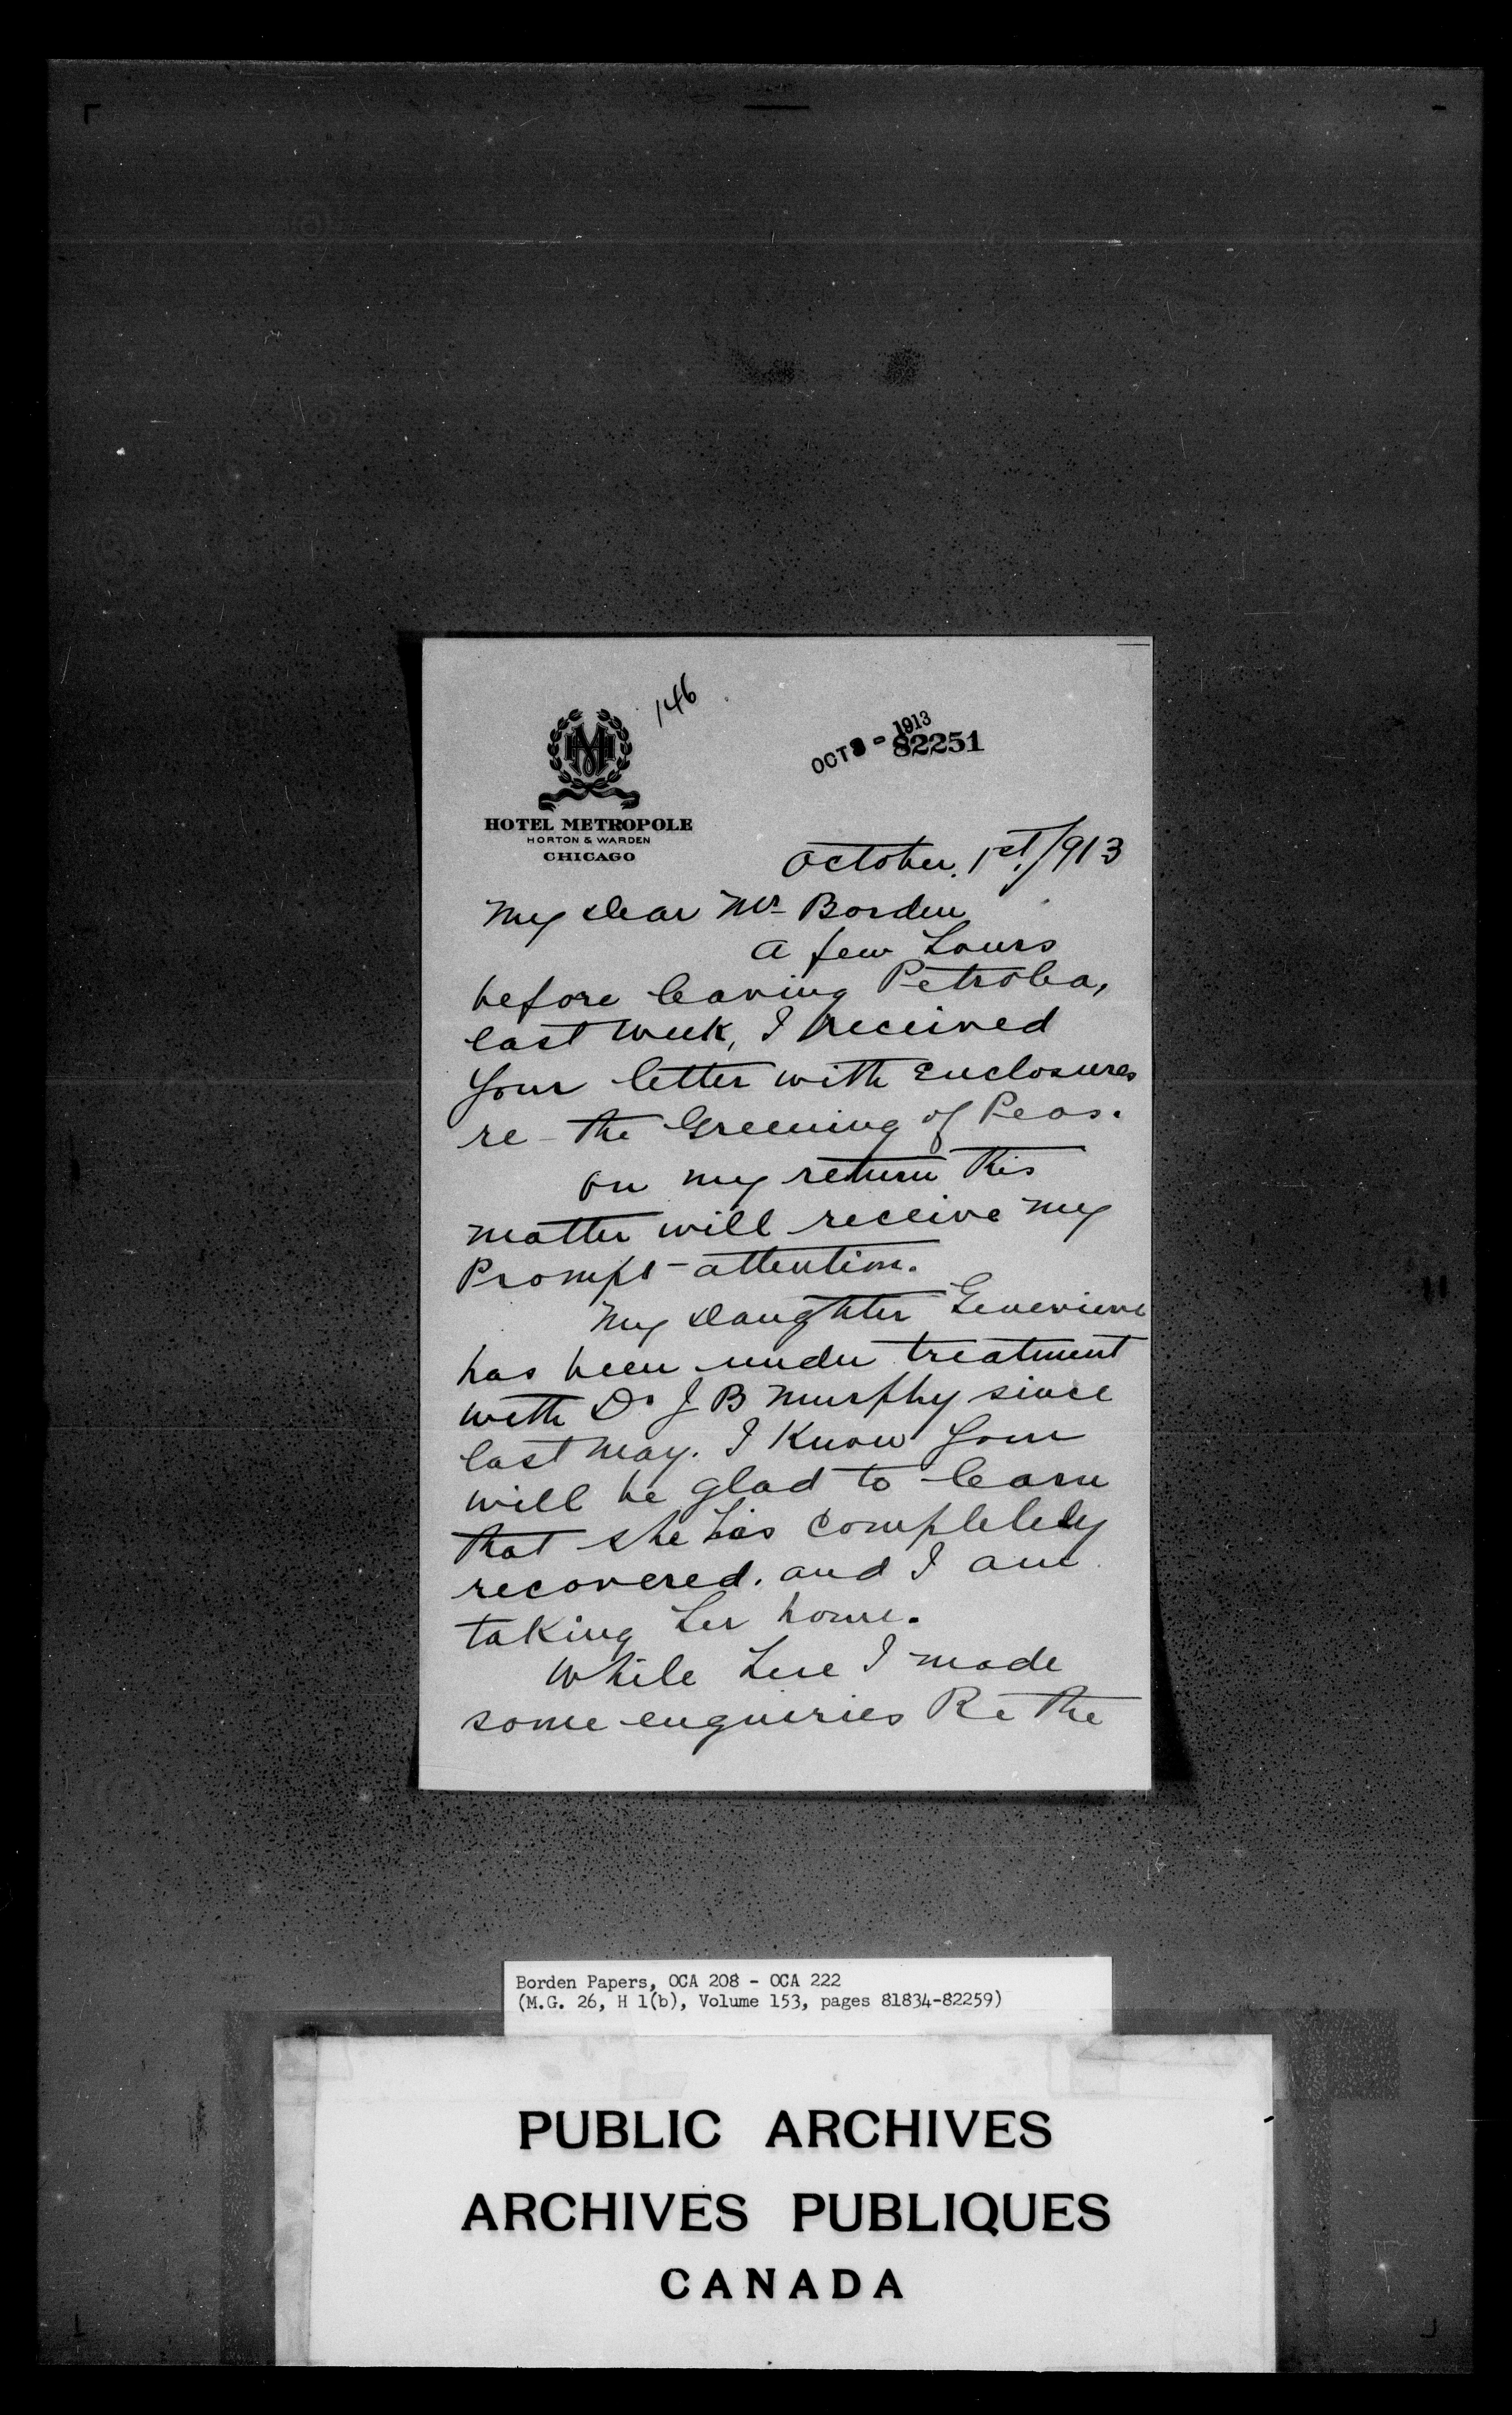 146
OCT 3 - 1913
82251
HOTEL METROPOLE
HORTON & WARDEN
CHICAGO
October. 1st/913
My dear Mr Borden
A few hours
before leaving Petrolea,
last week, I received
your letter with Enclosures
re - the Greening of Peas.
On my return this
matter will receive my
Prompt - attention.
My daughter Genevieve
has been under treatment
with Dr J B Murphy since
last May. I Know your
will be glad to learn
that she has completely
recovered. and I am
taking her home.
While here I made
some enquiries Re the
Borden Papers, OCA 208 - OCA 222
(M.G. 26, H 1(b), Volume 153, pages 81834-82259)
PUBLIC ARCHIVES
ARCHIVES PUBLIQUES
CANADA